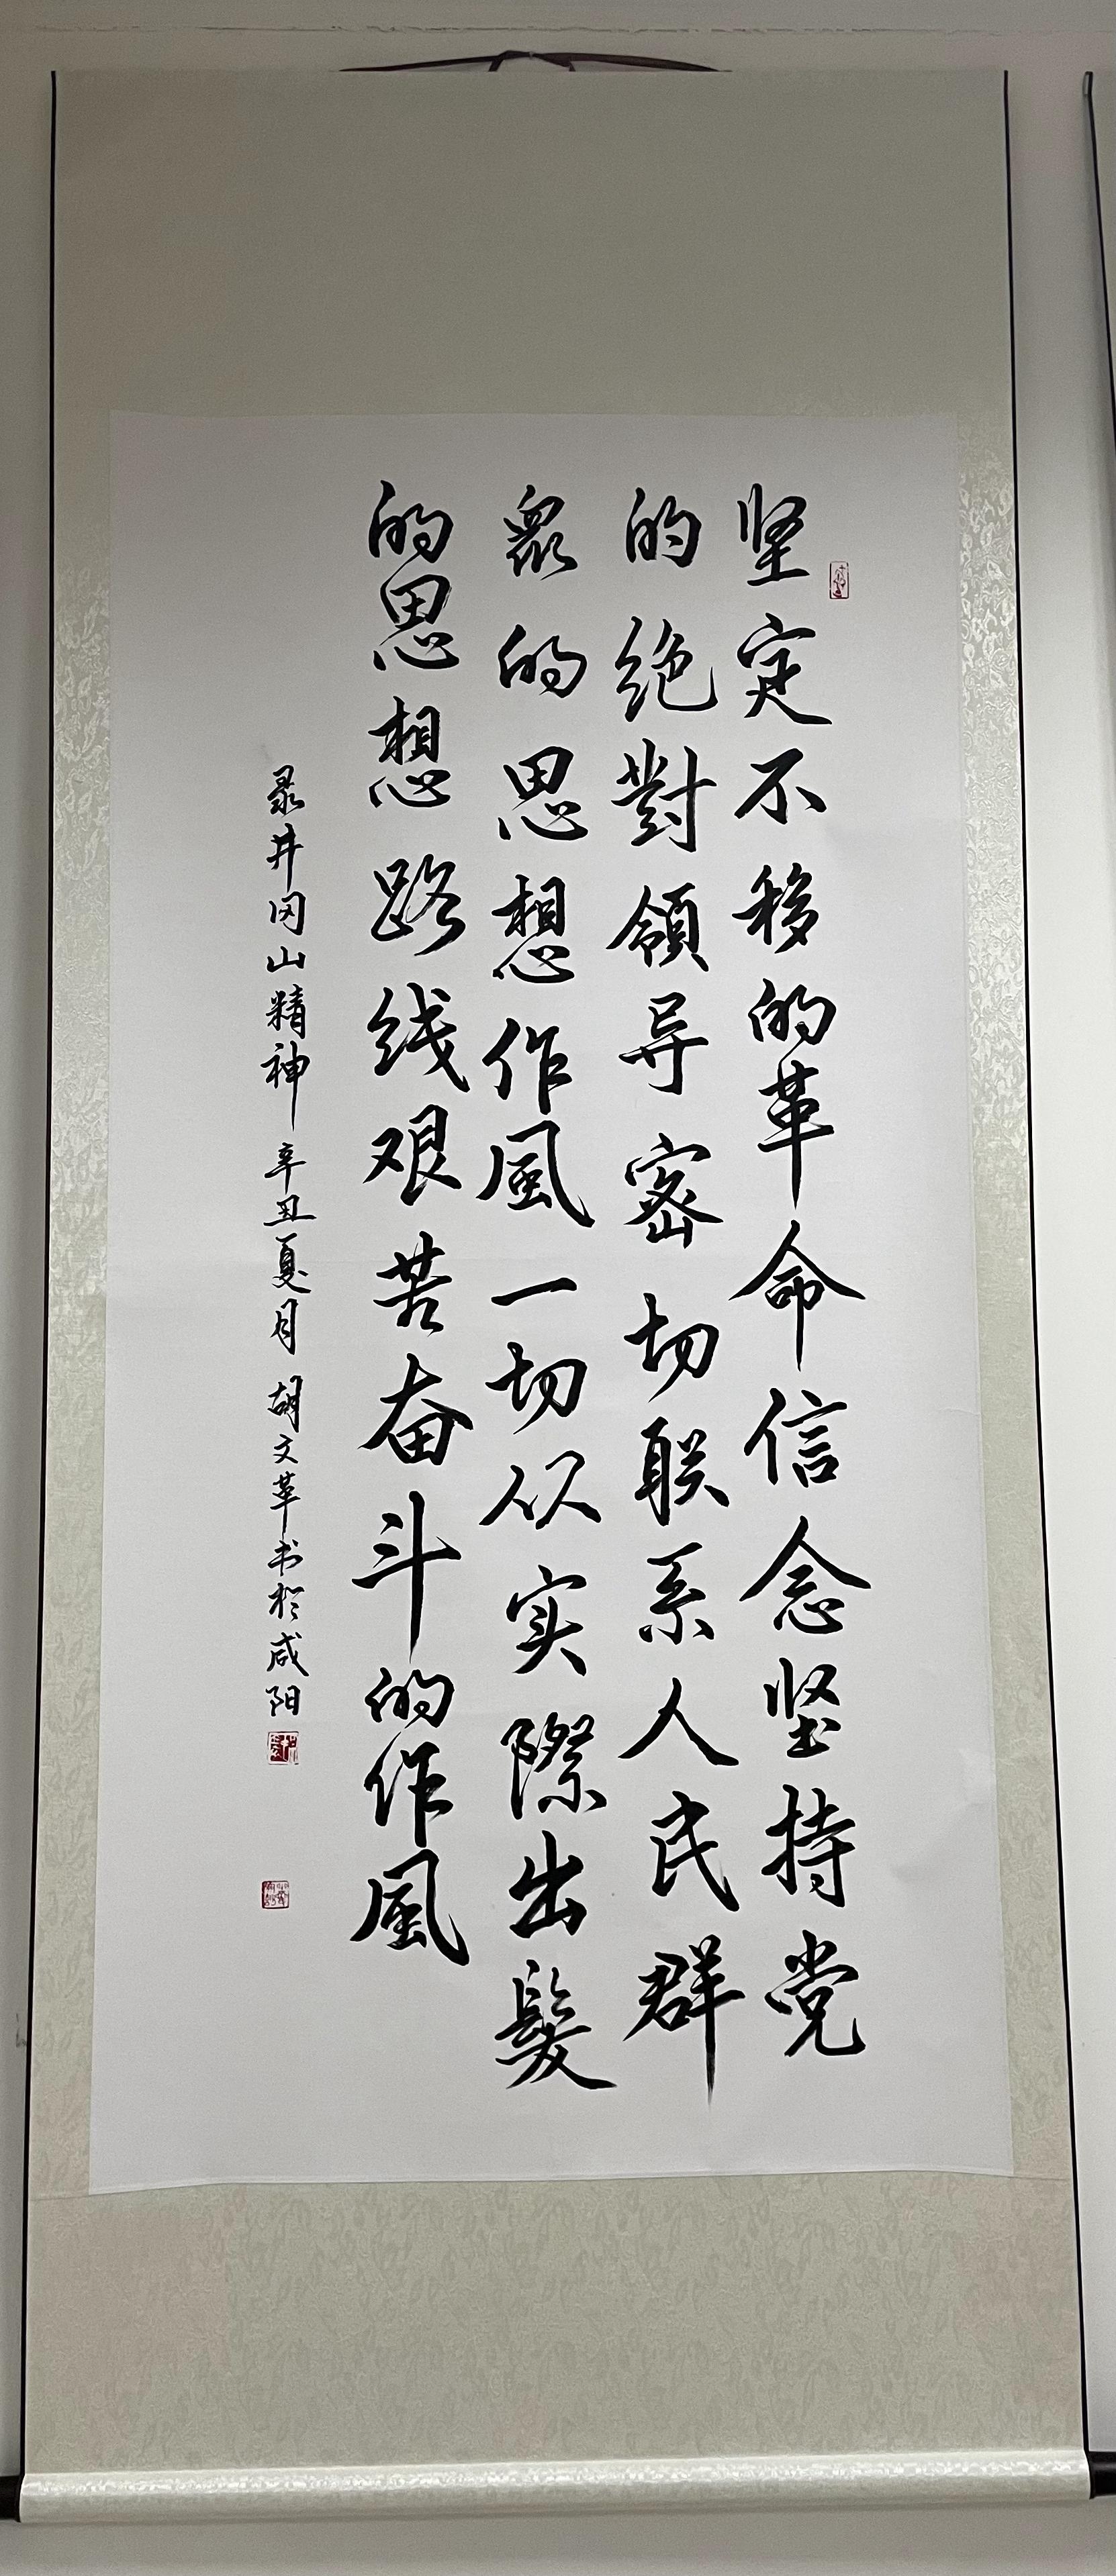 坚定不移的革命信念坚持党
的绝對領导密切联系人民群
衆的思想作風一切从实際出髮
的思想路线艰苦奋斗的作風
录井冈山精神辛丑夏月胡文革书於咸阳